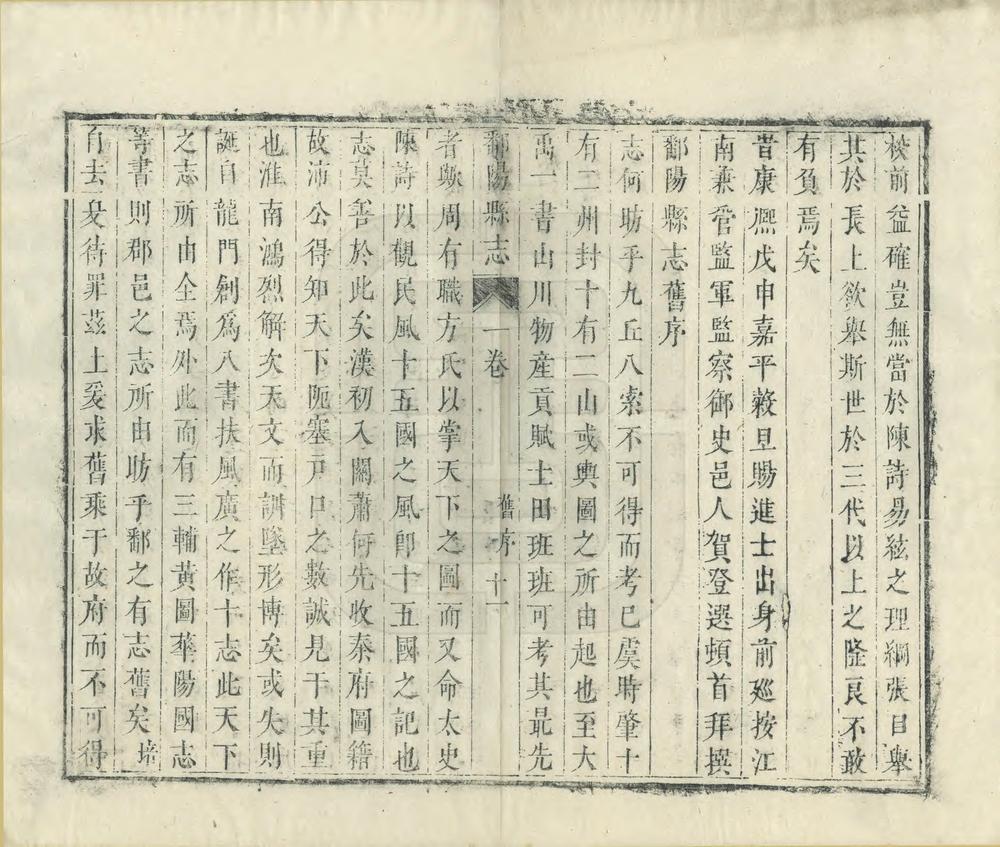 校前益確豈無當於陳詩易絃之理綱張目舉
其於長上欲舉斯世於三代以上之隆良不敢
有負焉矣
昔康熈戊申嘉平榖旦賜進士出身前廵按江
南兼管監軍監察御史邑人賀登選頓首拜撰
鄱陽縣志舊序
志何昉乎九丘八索不可得而考已虞時肇十
有二州封十有二山或輿圖之所由起也至大
禹一書山川物産貢賦土田班班可考其最先
鄱陽縣志 一卷 舊序 十一
者歟周有職方氏以掌天下之圖而又命太史
陳詩以觀民風十五國之風卽十五國之記也
志莫善於此矣漢初入關蕭何先收秦府圖籍
故沛公得知天下阨塞戸口之數誠見于其重
也淮南鴻烈解次天文而訓墬形博矣或失則
誕自龍門創爲八書扶風廣之作十志此天下
之志所由全焉外此而有三輔黃圖華陽國志
等書則郡邑之志所由昉乎鄱之有志舊矣培
自去夏待罪茲土爰求舊乘于故府而不可得